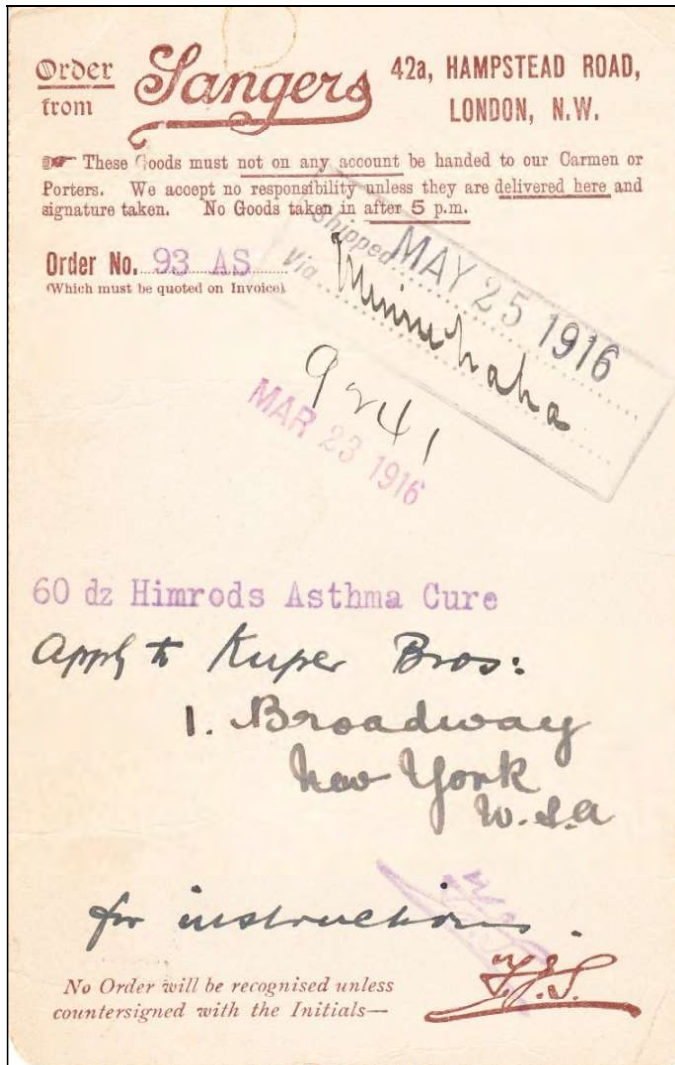 Order
from
Sangers
42a, HAMPSTEAD ROAD,
LONDON, N.W.
These Goods must not on any account be handed to our Carmen or
Porters. We accept no responsibility unless they are delivered here and
signature taken. No Goods taken in after 5 p.m.
Order No. 93 AS
(Which must be quoted on Invoice)
Shipped MAY 25 1916
Via Minnehaha
9241
MAR 23 1916
60 dz Himrods Asthma Cure
Apply to Kuper Bros:
1. Broadway
New York
U.S.A
for instructions.
No Order will be recognised unless
countersigned with the Initials—